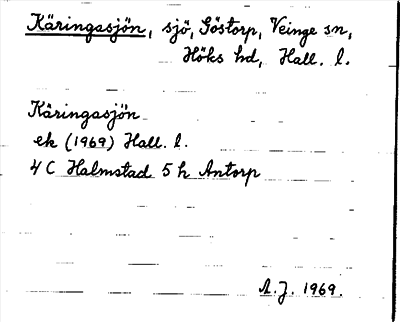 Käringasjön, sjö, Göstorp, Veinge sn,
Höks hd, Hall. l.
Käringasjön
ek (1969) Hall. l.
4 C Halmstad 5 h Antorp
A.J. 1969.